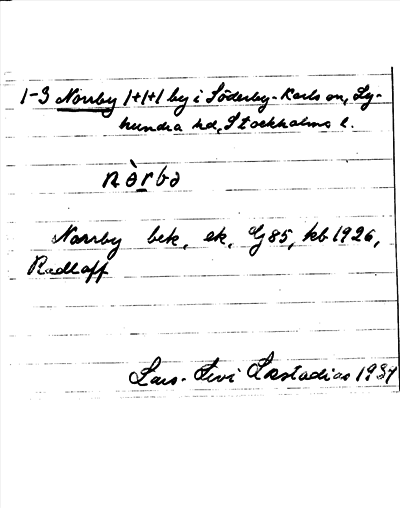 1-3 Norrby 1+1+1 by i Söderby-Karls sn, Ly-
hundra hd, Stockholms l.
Norrby bek, ek, Gj 85, kb 1926,
Radloff
Lars-Levi Læstadius 1937